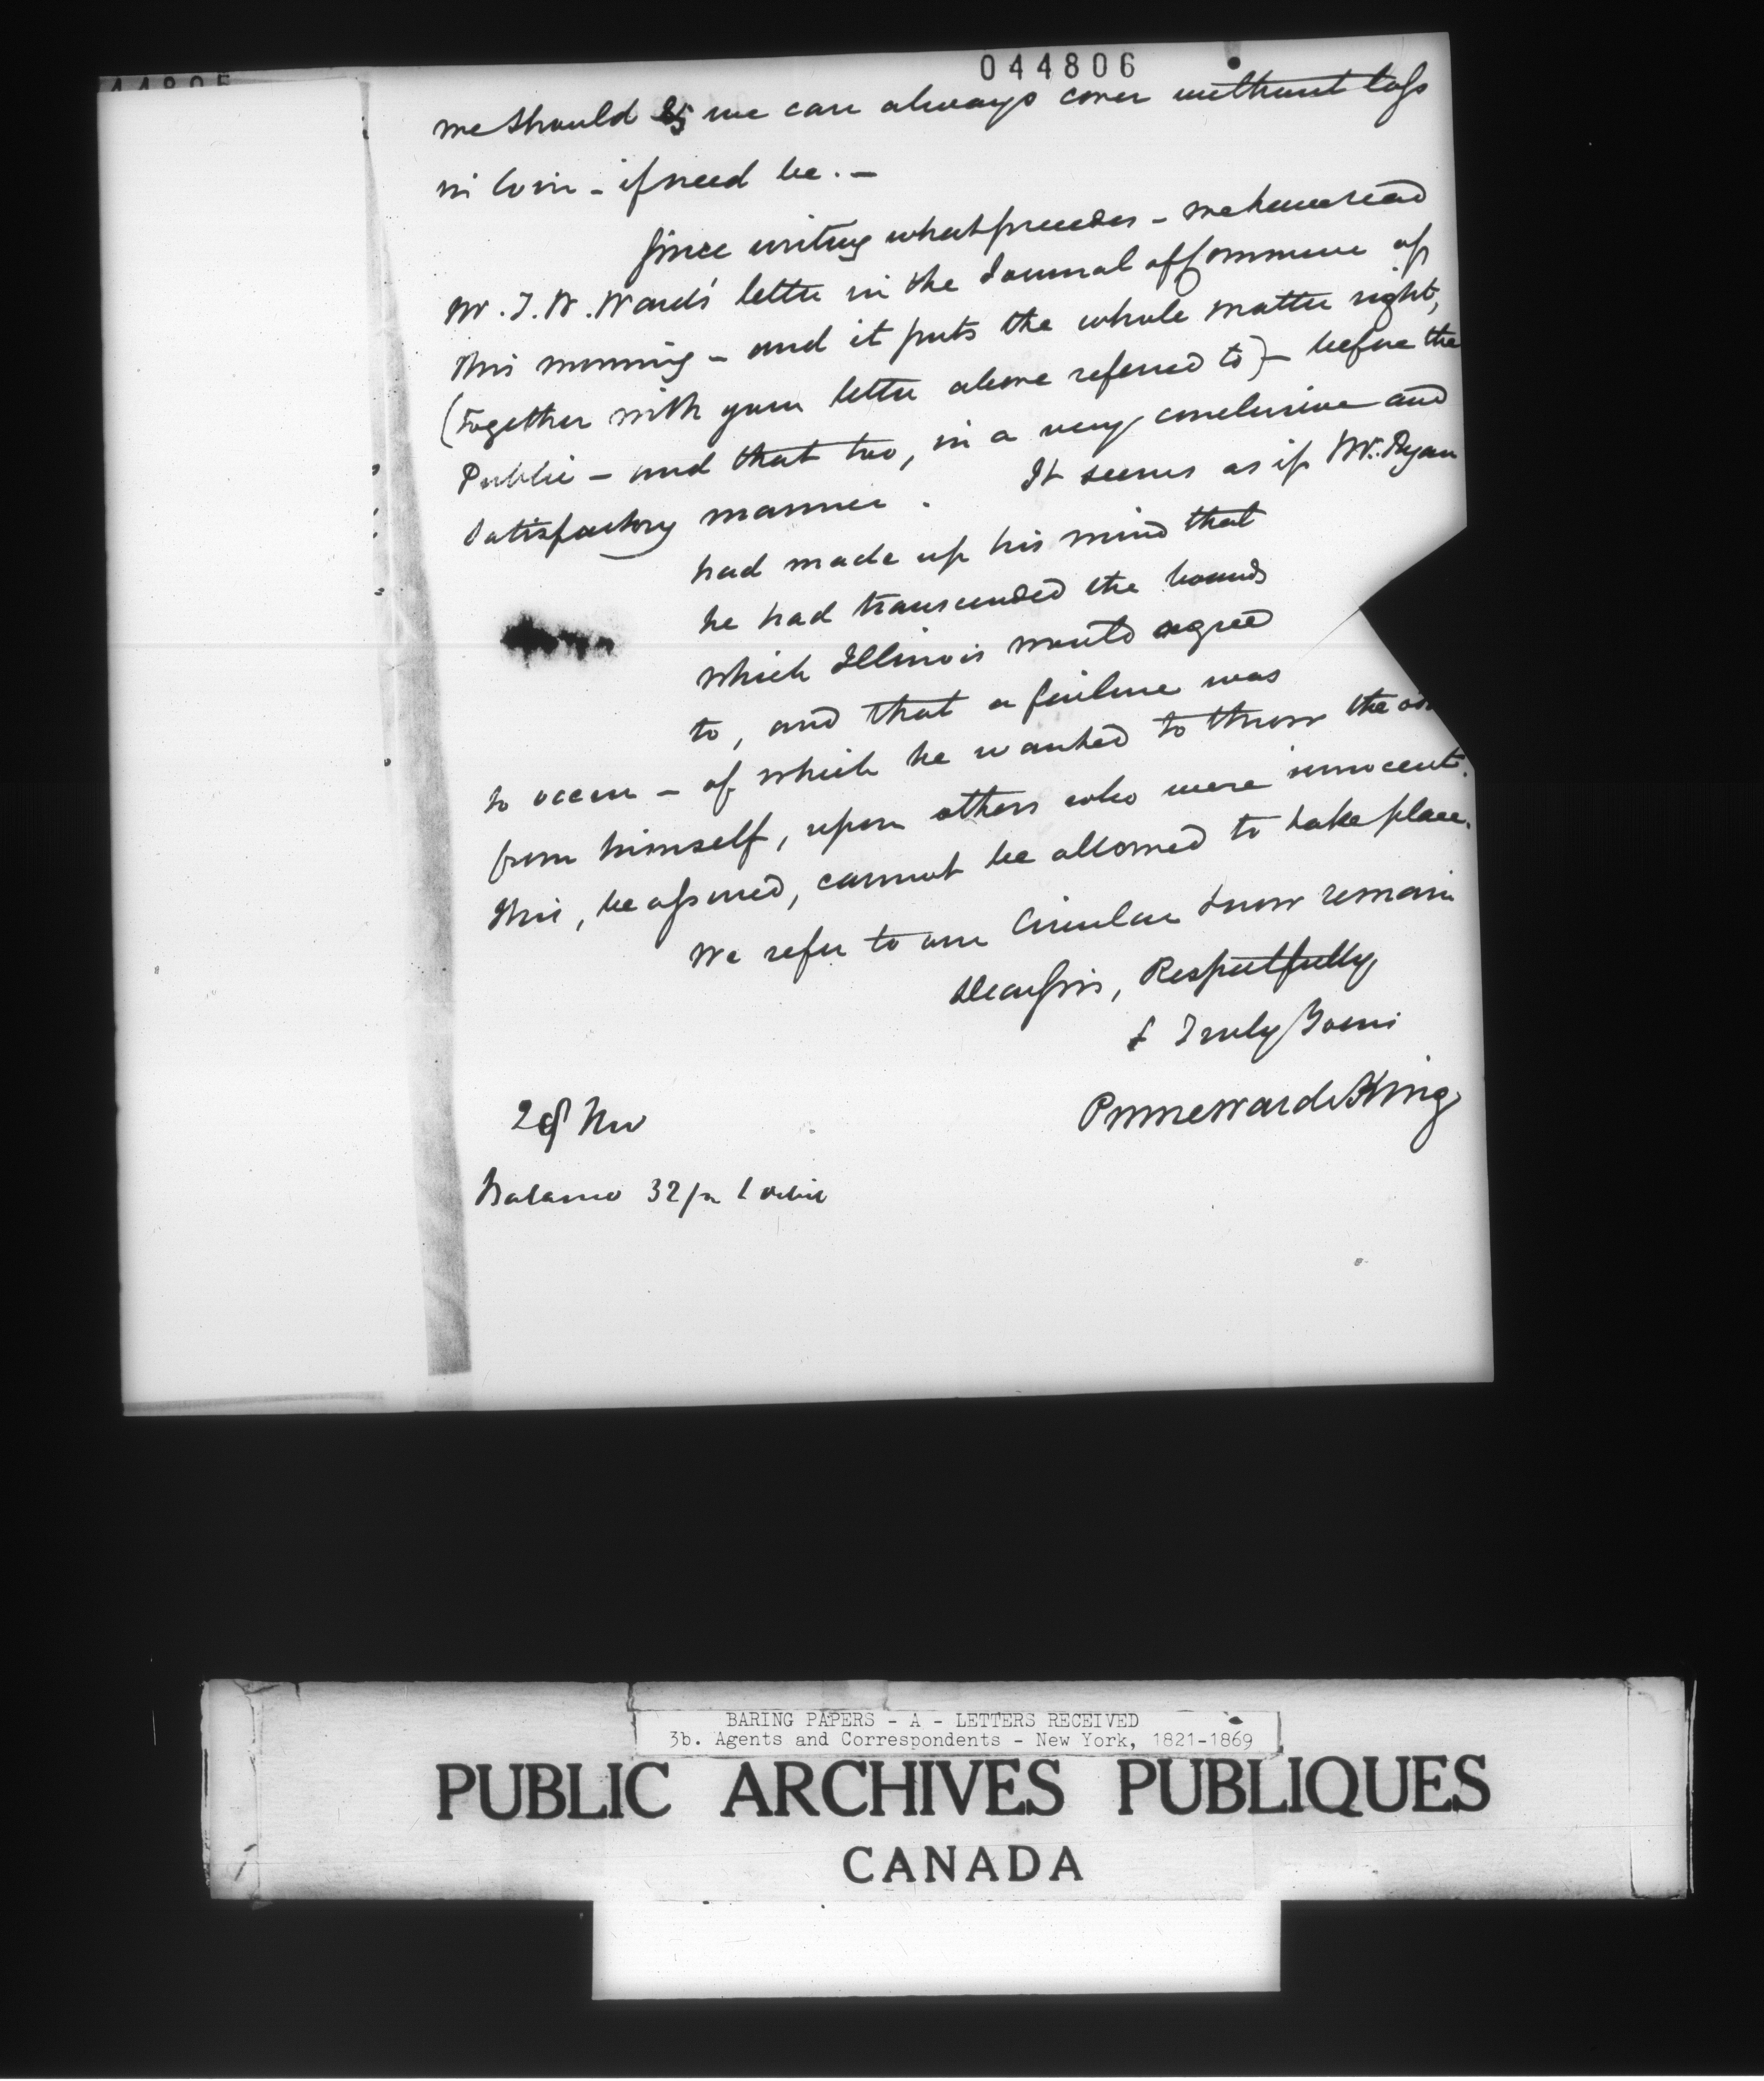 044806
we should as we can always cover without loss
in Coin - if need be. -
Since writing what precedes - we have read
Mr. T. W. Ward's letter in the Journal of Commerce of
this morning - and it puts the whole matter right,
(together with your letter above referred to) - before the
Public - and that too, in a very conclusive and
satisfactory manner. It seems as if Mr. Ryan
had made up his mind that
he had transcended the bounds
which Illinois would agree
to, and that a failure was
to occur - of which he wanted to throw the
from himself, upon others who were innocent.
This, be assured, cannot be allowed to take place.
We refer to our Circular & now remain
Dear Sirs, Respectfully
& Truly Yours
Prime Ward & King
28 Nov
Balance 32/m
BARING PAPERS - A - LETTERS RECEIVED
3b. Agents and Correspondents - New York, 1821-1869
PUBLIC ARCHIVES PUBLIQUES
CANADA